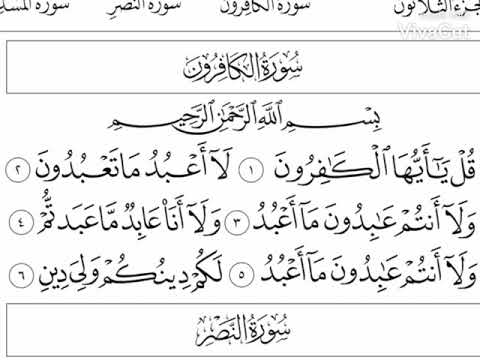 الجزء الثلاثون سورة الكافرون سورة النصر سورة المسد
VivaCut
سُورَةُ الكَافِرُونَ
بِسْمِ اللَّهِ الرَّحْمَٰنِ الرَّحِيمِ
قُلْ يَٰٓأَيُّهَا ٱلْكَٰفِرُونَ ١ لَآ أَعْبُدُ مَا تَعْبُدُونَ ٢
وَلَآ أَنتُمْ عَٰبِدُونَ مَآ أَعْبُدُ ٣ وَلَآ أَنَا۠ عَابِدٌ مَّا عَبَدتُّمْ ٤
وَلَآ أَنتُمْ عَٰبِدُونَ مَآ أَعْبُدُ ٥ لَكُمْ دِينُكُمْ وَلِيَ دِينِ ٦
سُورَةُ النَّصْرِ